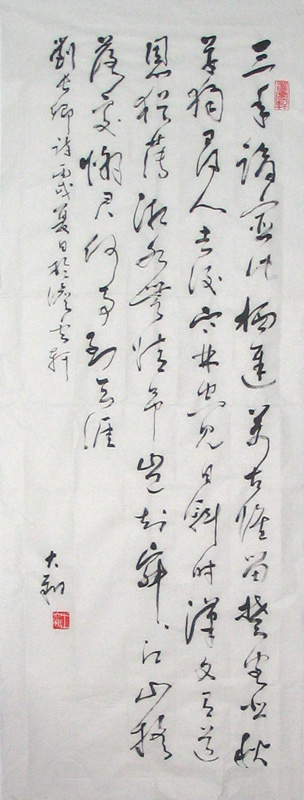 三年謫宦此栖遲萬古惟留楚客悲秋
草獨尋人去後寒林空見日斜時漢文有道
恩猶薄湘水無情弔豈知寂〻江山搖
落處憐君何事到天涯
劉長卿詩丙戌夏日於雲軒
大